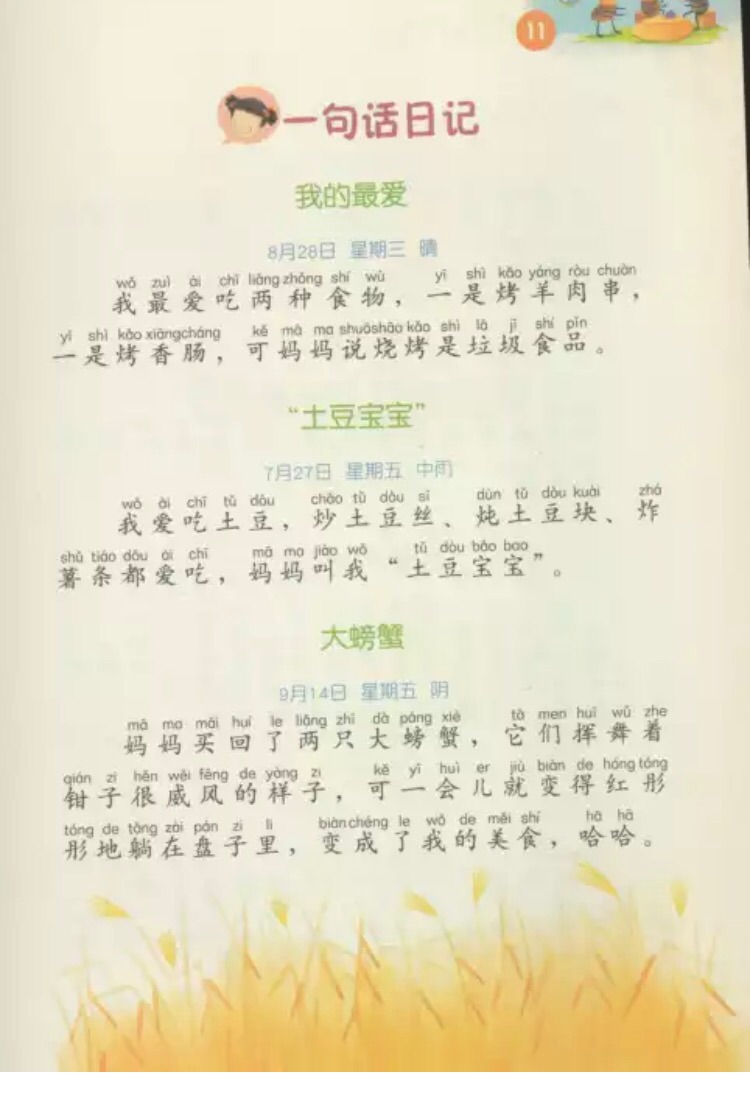 11
一句话日记
我的最爱
8月28日 星期三 晴
wǒ zuì ài chī liǎng zhǒng shí wù yī shì kǎo yáng ròu chuàn
我最爱吃两种食物，一是烤羊肉串，
yī shì kǎo xiāngcháng kě mā ma shuōshāo kǎo shì lā jī shí pǐn
一是烤香肠，可妈妈说烧烤是垃圾食品。
“土豆宝宝”
7月27日 星期五 中雨
wǒ ài chī tǔ dòu chǎo tǔ dòu sī dùn tǔ dòu kuài zhá
我爱吃土豆，炒土豆丝、炖土豆块、炸
shǔ tiáo dōu ài chī mā ma jiào wǒ tǔ dòu bǎo bao
薯条都爱吃，妈妈叫我“土豆宝宝”。
大螃蟹
9月14日 星期五 阴
mā ma mǎi huí le liǎng zhī dà páng xiè tā men huī wǔ zhe
妈妈买回了两只大螃蟹，它们挥舞着
qián zi hěn wēi fēng de yàng zi kě yī huì er jiù biàn de hóng tóng
钳子很威风的样子，可一会儿就变得红彤
tóng de tǎng zài pán zi li biàn chéng le wǒ de měi shí hā hā
彤地躺在盘子里，变成了我的美食，哈哈。